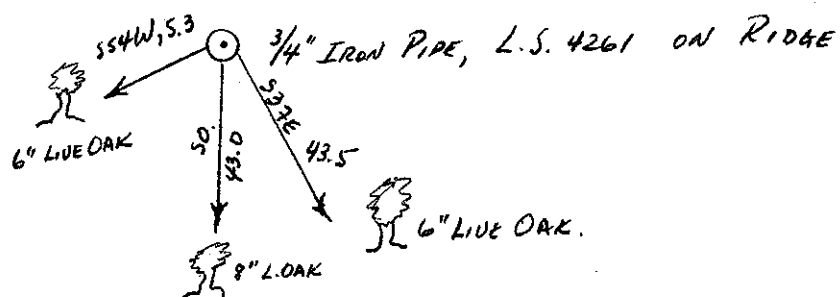 S54W, 5.3
3/4" IRON PIPE, L.S. 4261 ON RIDGE
6" LIVE OAK
SO.
43.0
S37E
43.5
6" LIVE OAK.
8" L.OAK